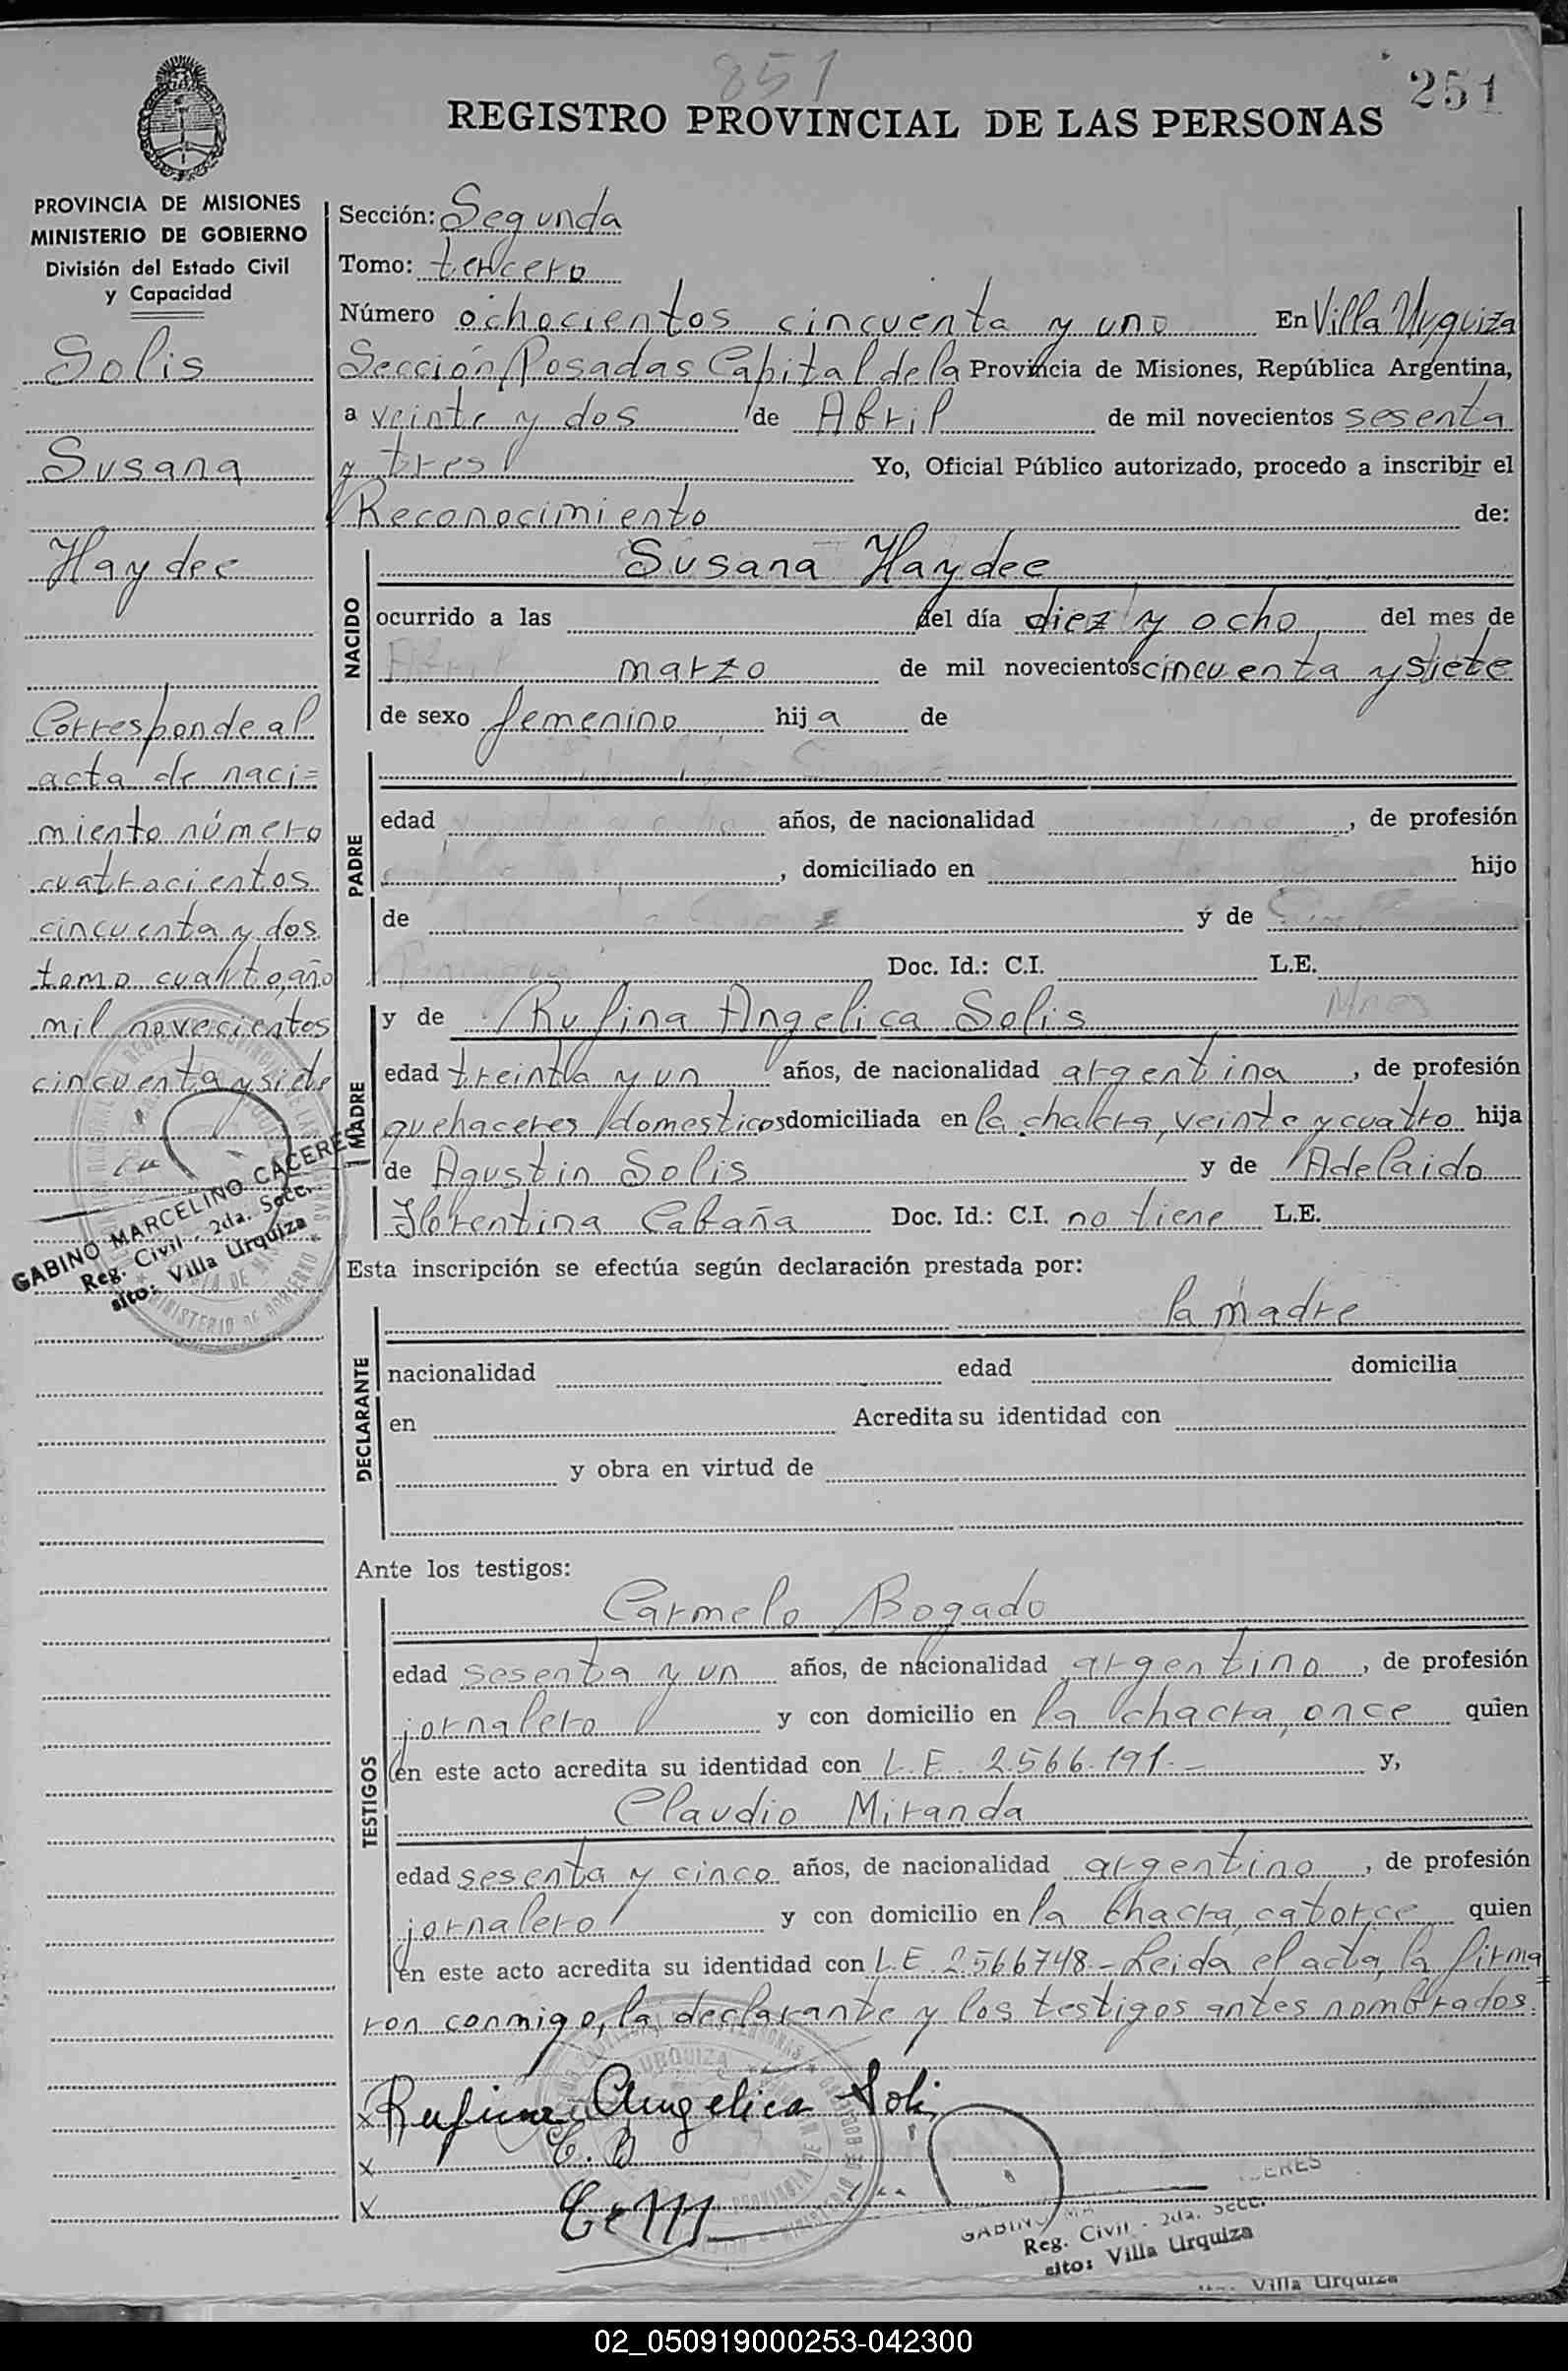 851
251
REGISTRO PROVINCIAL DE LAS PERSONAS
PROVINCIA DE MISIONES
MINISTERIO DE GOBIERNO
División del Estado Civil
y Capacidad
Solis
Susana
Haydee
Corresponde al
acta de naci=
miento número
cuatrocientos
cincuenta y dos
tomo cuarto, año
mil novecientos
cincuenta y siete
GABINO MARCELINO CACERES
Reg. Civil - 2da. Secc.
sito: Villa Urquiza
Sección: Segunda
Tomo: tercero
Número ochocientos cincuenta y uno En Villa Urquiza
Sección, Posadas Capital de la Provincia de Misiones, República Argentina,
a veinte y dos de Abril de mil novecientos sesenta
y tres Yo, Oficial Público autorizado, procedo a inscribir el
Reconocimiento de:
NACIDO
Susana Haydee
ocurrido a las del día diez y ocho del mes de
marzo de mil novecientos cincuenta y siete
de sexo femenino hija de
PADRE
edad años, de nacionalidad , de profesión
, domiciliado en hijo
de y de
Doc. Id.: C.I. L.E.
MADRE
y de Rufina Angelica Solis
edad treinta y un años, de nacionalidad argentina, de profesión
quehaceres domesticos domiciliada en la chacra, veinte y cuatro hija
de Agustin Solis y de Adelaido
Florentina Cabaña Doc. Id.: C.I. no tiene L.E.
Esta inscripción se efectúa según declaración prestada por:
DECLARANTE
la madre
nacionalidad edad domicilia
en Acredita su identidad con
y obra en virtud de
Ante los testigos:
TESTIGOS
Carmelo Bogado
edad sesenta y un años, de nacionalidad argentino, de profesión
jornalero y con domicilio en la chacra, once quien
en este acto acredita su identidad con L.E. 2.566.191.- y,
Claudio Miranda
edad sesenta y cinco años, de nacionalidad argentino, de profesión
jornalero y con domicilio en la chacra, catorce quien
en este acto acredita su identidad con L.E. 2566748.- Leida el acta, la firma=
ron conmigo, la declarante y los testigos antes nombrados.
x Rufina Angelica Solis
x C. B
x C. M
Reg. Civil - 2da. Secc.
sito: Villa Urquiza
Villa Urquiza
02_050919000253-042300